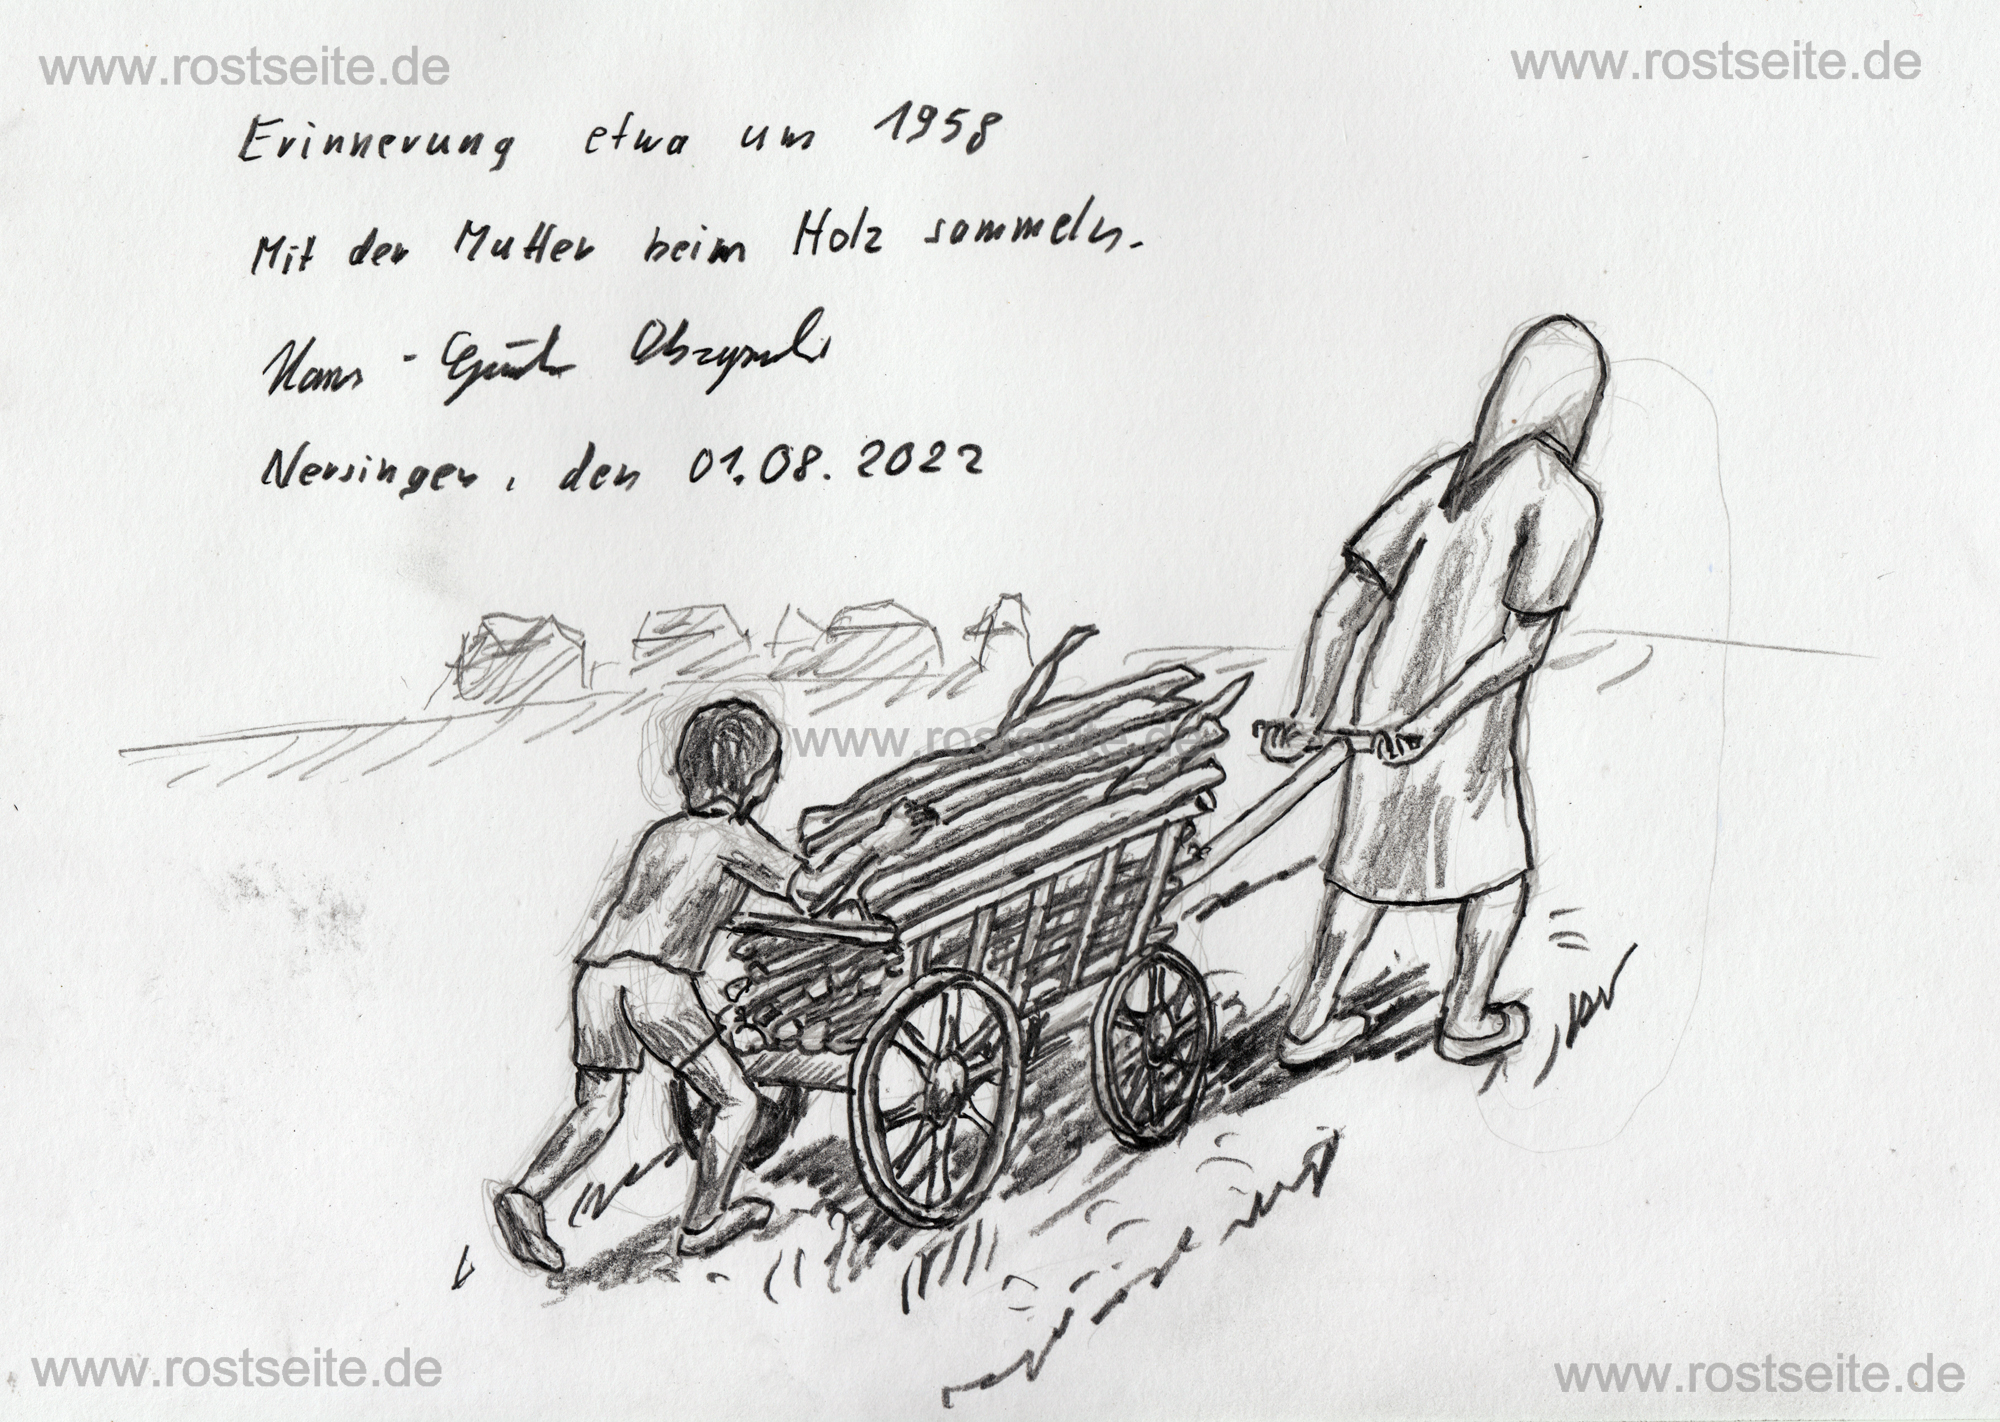 www.rostseite.de www.rostseite.de
Erinnerung etwa um 1958
Mit der Mutter beim Holz sammeln.
Hans-
Nersingen, den 01.08.2022
www.rostseite.de
www.rostseite.de www.rostseite.de